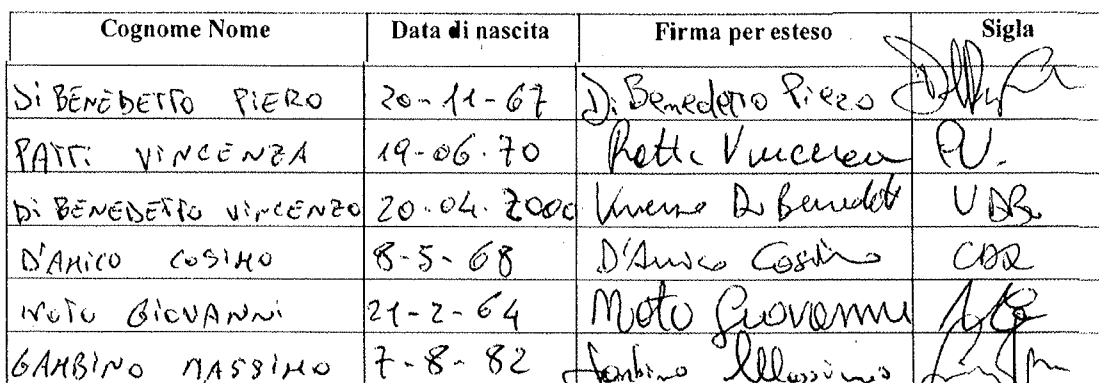 Cognome Nome Data di nascita Firma per esteso Sigla
Di BENEDETTO PiERO 20-11-67 Di Benedetto Piero
PATTi ViNCENZA 19-06-70 Patti Vincenza PV.
Di BENEDETTO ViNCENZO 20.04.2000 Vincenzo Di Benedetto VDB
D'AMiCO COSiMO 8-5-68 D'Amico Cosimo
NOTO GiOVANNi 21-2-64 Noto Giovanni
GAMBiNO MASSiMO 7-8-82 Gambino Massimo